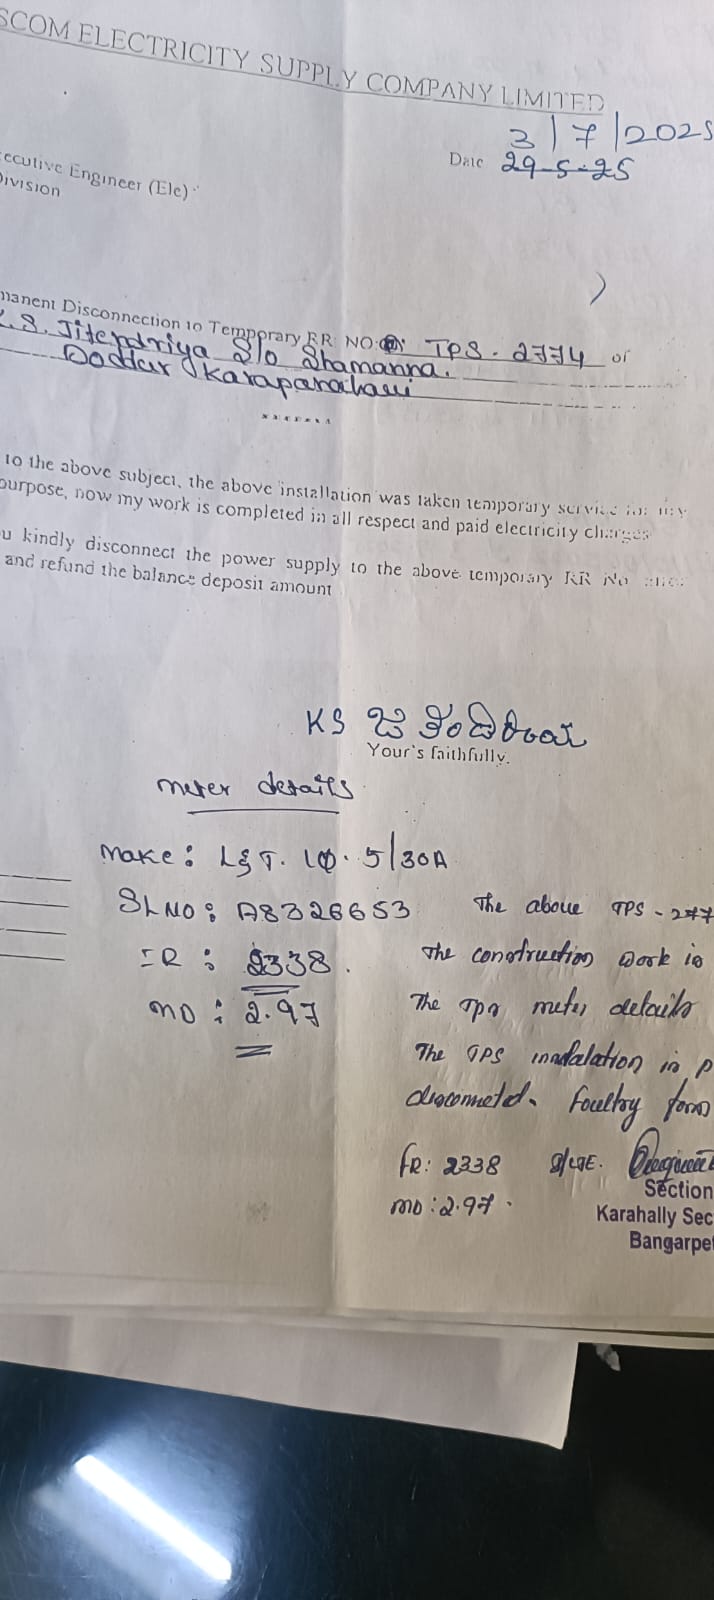 SCOM ELECTRICITY SUPPLY COMPANY LIMITED
3/7/2025
Date 29-5-25
ecutive Engineer (Ele)
Division
manent Disconnection to Temporary RR NO: TPS-2774 of
K.S. Jitendriya S/o Shamanna.
Doddur Karapanahalli
*******
to the above subject, the above installation was taken temporary service for my
purpose, now my work is completed in all respect and paid electricity charges
u kindly disconnect the power supply to the above temporary RR No
and refund the balance deposit amount
KS
Your's faithfully.
meter details
Make: L&T. 1Φ. 5/30A
SL NO: A8326653
IR: 2338.
MD: 2.97
The above TPS-277
The construction work is
The meter details
The TPS in
FR: 2338
MD: 2.97.
Section
Karahally Sec
Bangarpe